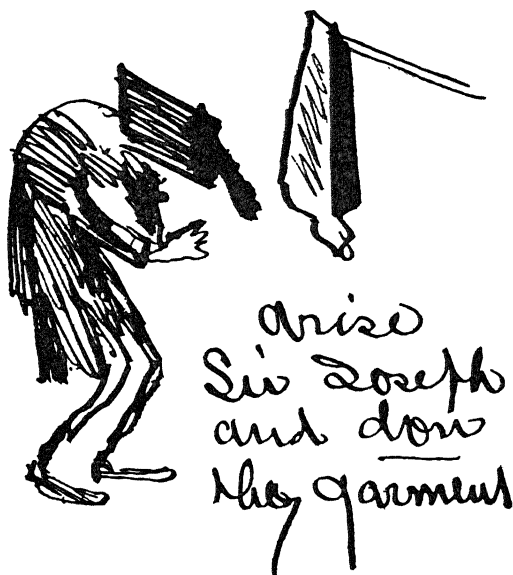 arise
Sir Joseph
and don
thy garment